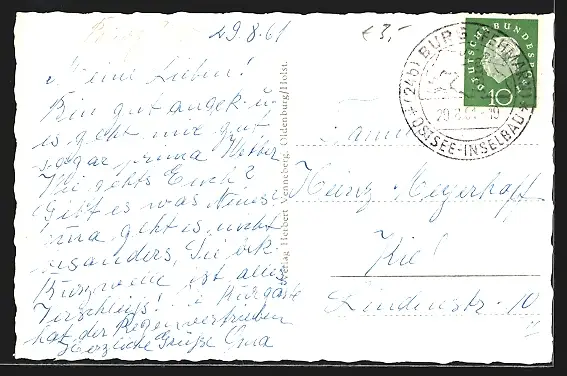 29.8.61
€ 3,-
Meine Lieben!
Bin gut angek. u.
es geht mir gut,
sogar prima Wetter
Wie gehts Euch?
Gibt es was Neues?
geht es nicht
besonders, Sie bek.
ist alles
Verschleiß! Kurgäste
hat der Regen vertrieben
Herzliche Grüße Oma
Verlag Herbert Venneberg, Oldenburg/Holst.
DEUTSCHE BUNDESPOST
10
(24b) BURG (FEHMARN)
29.8.61-19
OSTSEE-INSELBAD
Fam.
Heinz Meyerhoff
Kiel
Lindenstr. 10